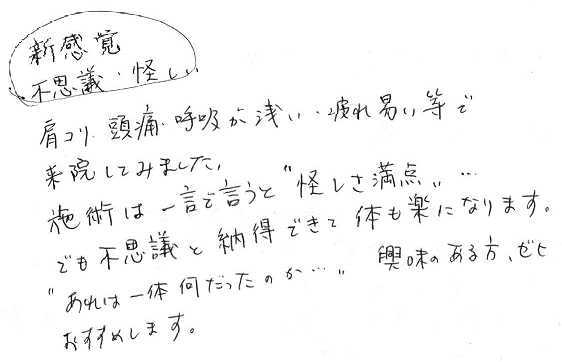 新感覚
不思議・怪しい
肩コリ・頭痛・呼吸が浅い・疲れ易い等で
来院してみました。
施術は一言で言うと"怪しさ満点"…
でも不思議と納得できて体も楽になります。
"あれは一体何だったのか…" 興味のある方、ぜひ
おすすめします。